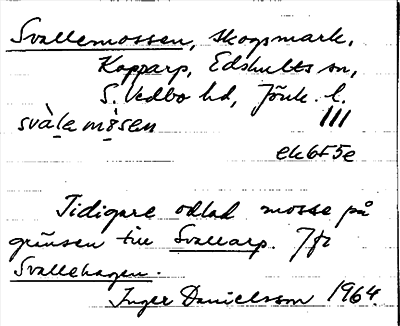 Svallemossen, skogsmark,
Kopparp, Edshults sn,
S. Vedbo hd, Jönk. l.
svàlemòsen III
ek6f5e
Tidigare odlad mosse på
gränsen till Svallarp. Jfr
Svallehagen.
Inger Danielsson 1964